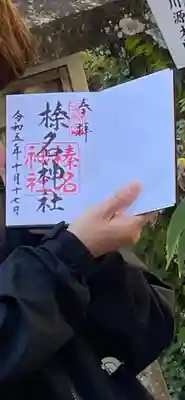 奉拝
榛名神社
榛名
神社
令和五年十月十七日
川源